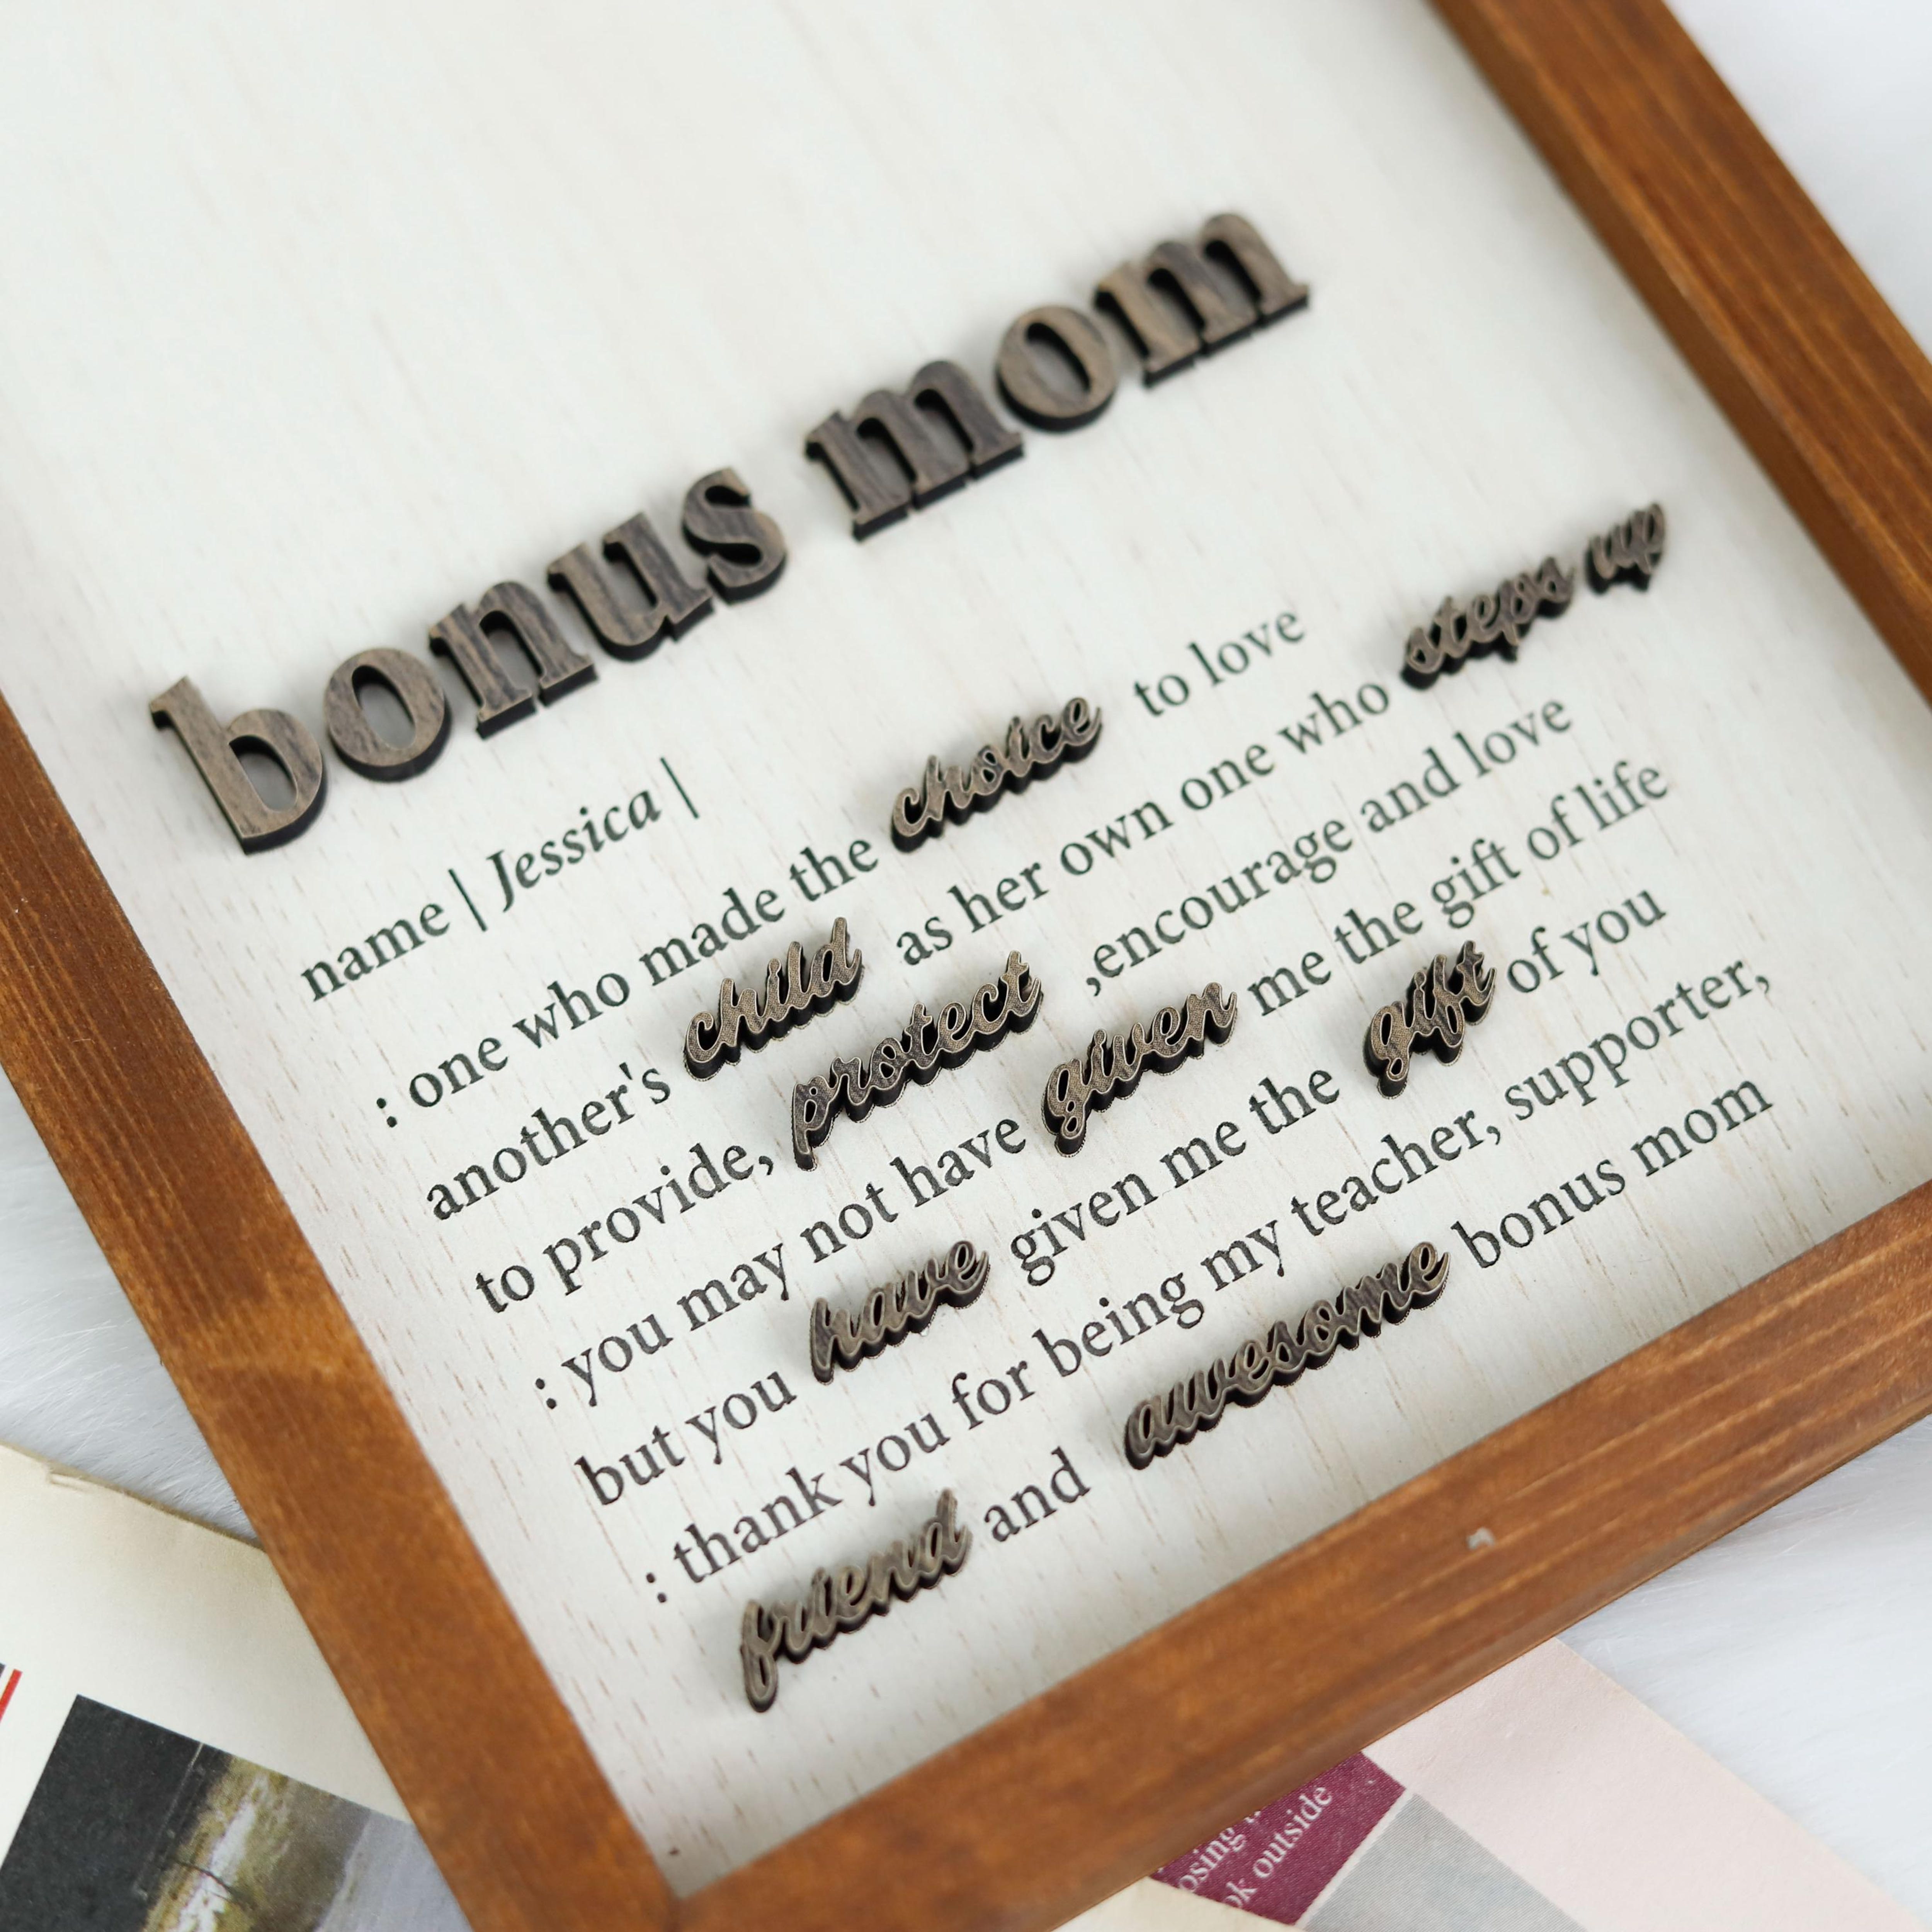 bonus mom
name | Jessica |
: one who made the choice to love
another's child as her own one who steps up
to provide, protect ,encourage and love
: you may not have given me the gift of life
but you have given me the gift of you
: thank you for being my teacher, supporter,
friend and awesome bonus mom
outside